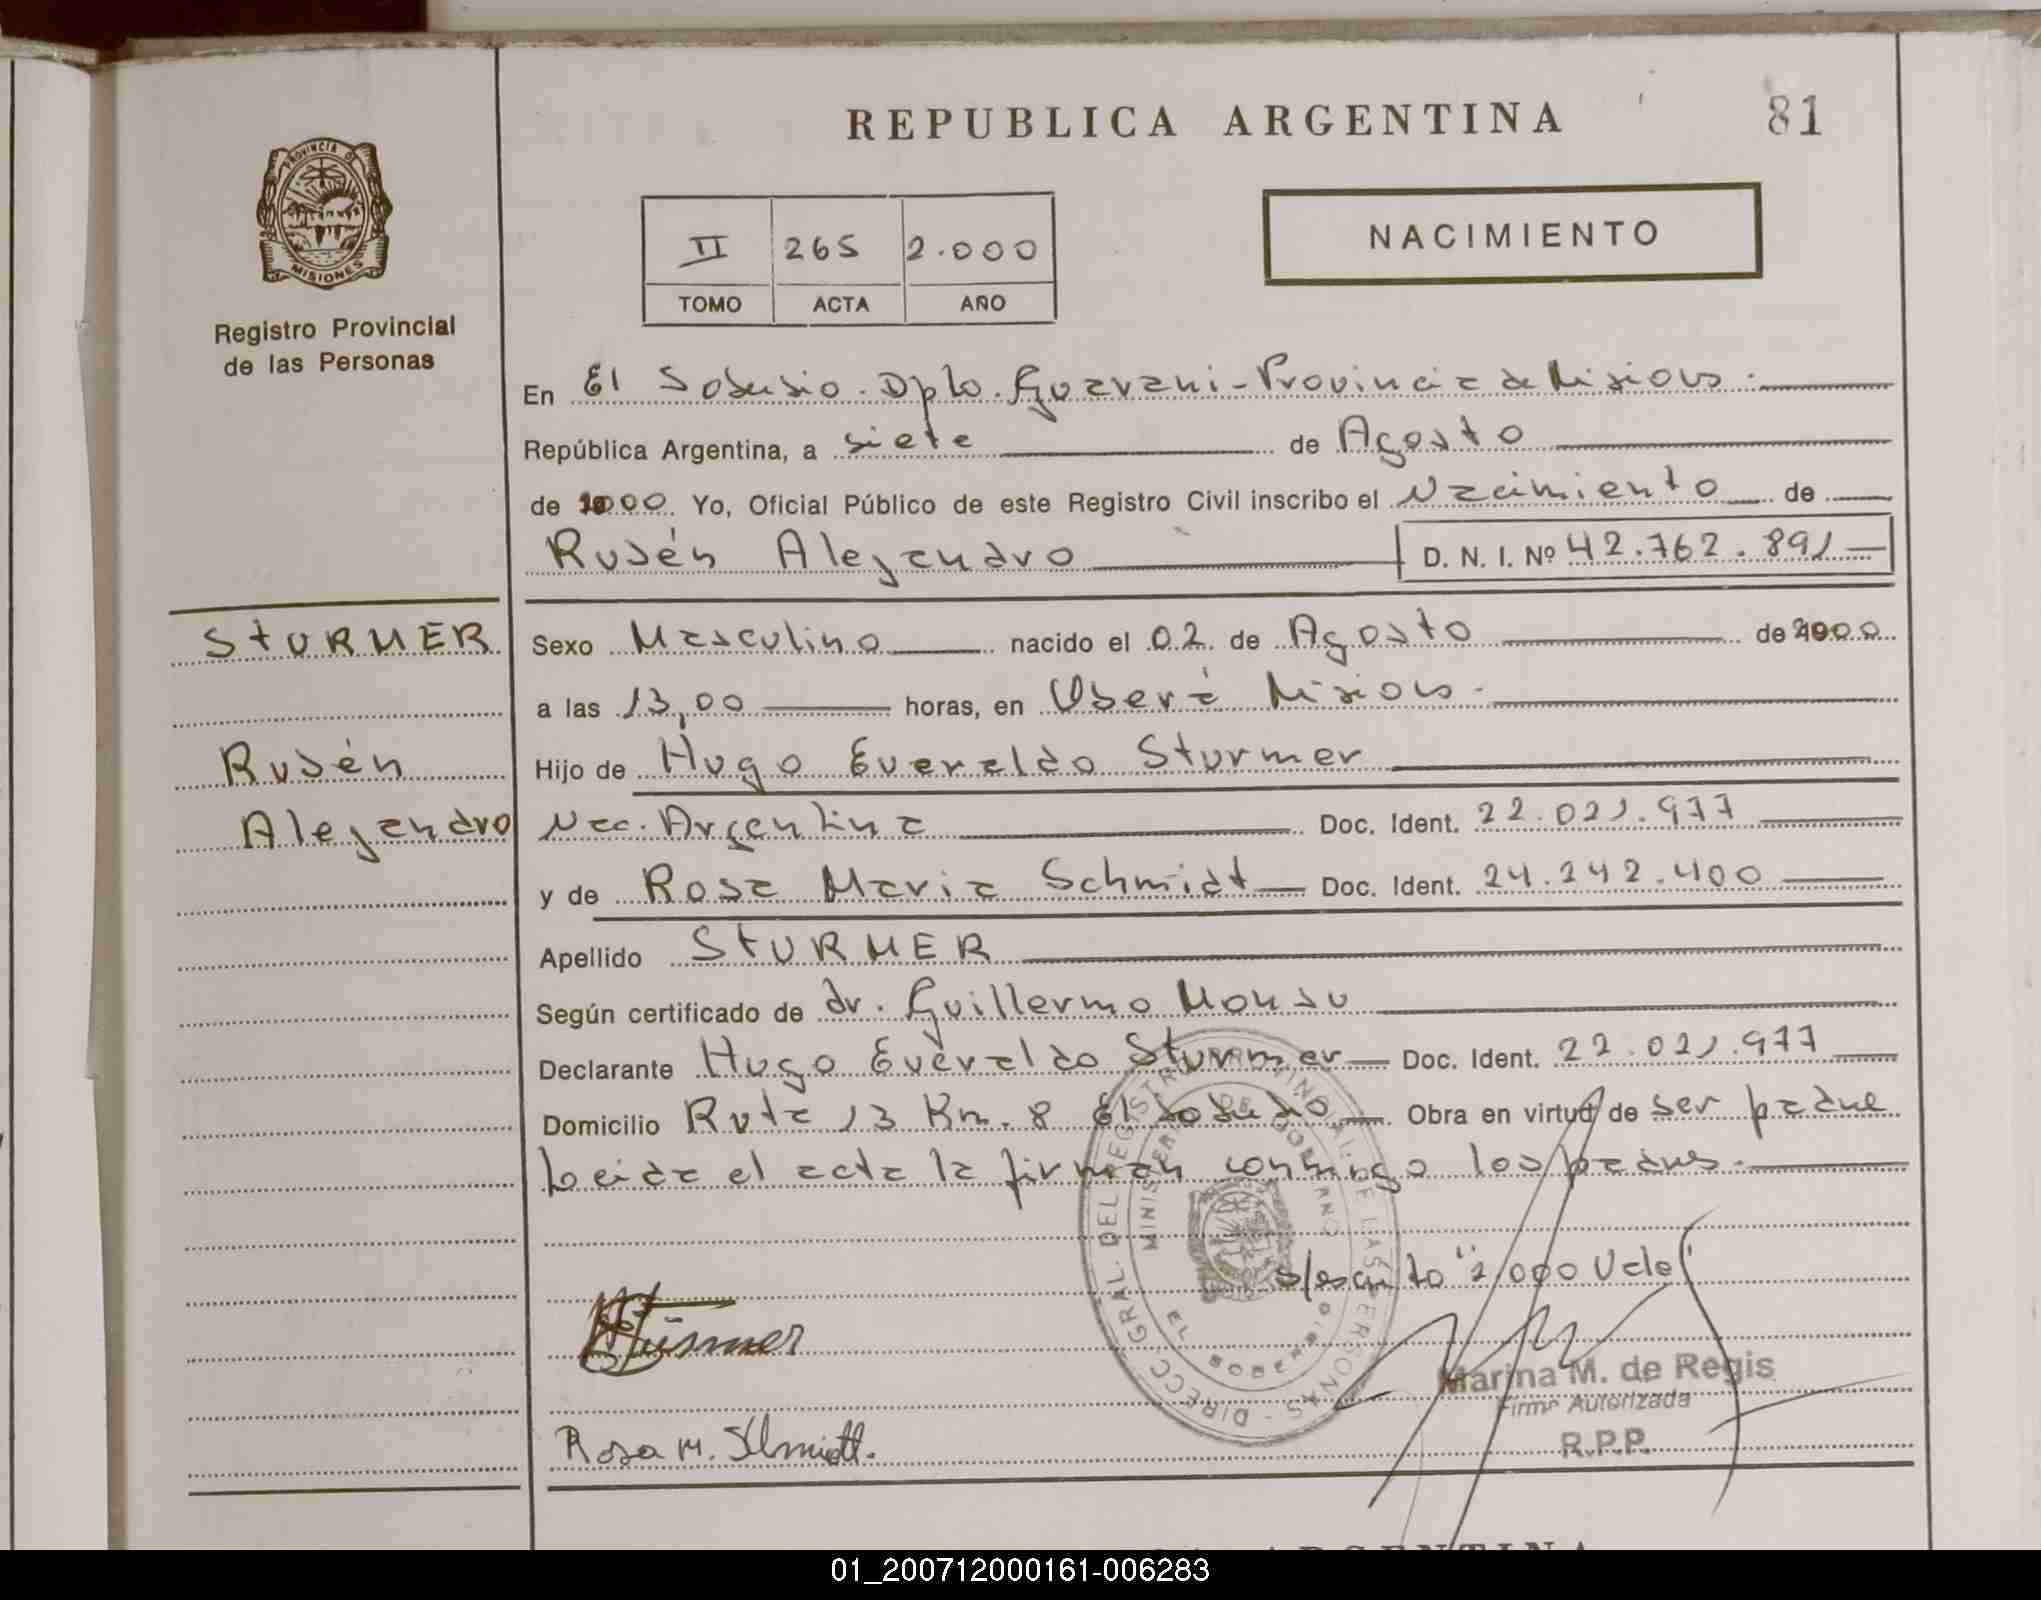 REPUBLICA ARGENTINA
81
PROVINCIA DE
MISIONES
Registro Provincial
de las Personas
II 265 2.000
TOMO ACTA AÑO
NACIMIENTO
En El Soberbio. Dpto. Guarani - Provincia de Misiones.
República Argentina, a siete de Agosto
de 2000 Yo, Oficial Público de este Registro Civil inscribo el Nacimiento de
Rubén Alejandro D. N. I. Nº 42.762.891
STURMER
Sexo Masculino nacido el 02 de Agosto de 2000
a las 13,00 horas, en Oberá Misiones.
Rubén
Hijo de Hugo Everaldo Sturmer
Alejandro
Nac. Argentina Doc. Ident. 22.021.977
y de Rosa Maria Schmidt Doc. Ident. 24.242.400
Apellido STURMER
Según certificado de dr. Guillermo
Declarante Hugo Everaldo Sturmer Doc. Ident. 22.021.977
Domicilio Ruta 13 Km. 8 El Soberbio Obra en virtud de ser padre
Leida el acta la firman conmigo los padres.
DIRECC. GRAL. DEL REGISTRO PROVINCIAL DE LAS PERSONAS
MINISTERIO DE GOBIERNO
EL SOBERBIO
s/escrito "2.000 Vale
Sturmer
Marina M. de Regis
Firma Autorizada
R.P.P.
Rosa M. Schmidt.
ARGENTINA
01_200712000161-006283